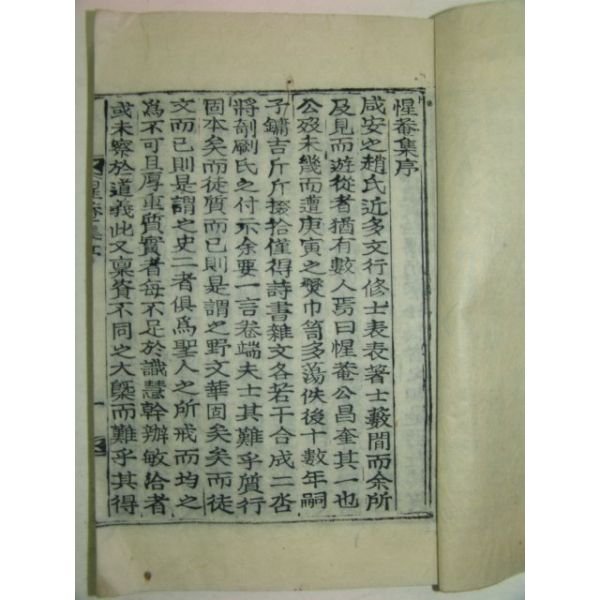 惺菴集序
咸安之趙氏近多文行修士表表著士藪間而余所
及見而遊從者猶有數人焉曰惺菴公昌奎其一也
公歿未幾而遭庚寅之燹巾笥多蕩佚後十數年嗣
子鏞吉斤斤掇拾僅得詩書雜文各若干合成二沓
將剞劂氏之付示余要一言卷端夫士其難乎質行
固本矣而徒質而已則是謂之野文華固矣矣而徒
文而已則是謂之史二者俱爲聖人之所戒而均之
爲不可且厚重質實者每不足於識慧幹辦敏洽者
或未察於道義此又稟資不同之大槩而難乎其得